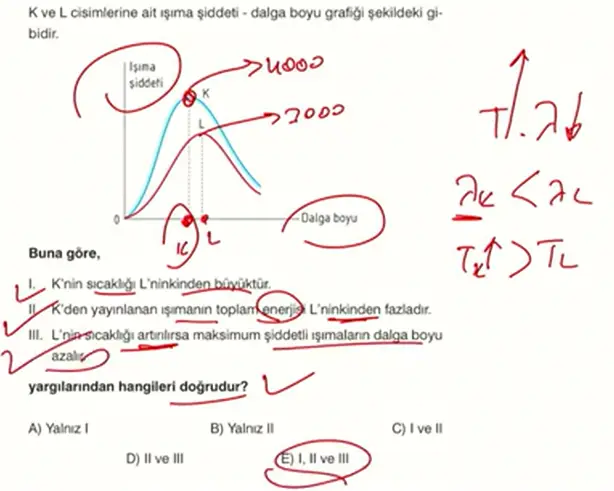 K ve L cisimlerine ait ışıma şiddeti - dalga boyu grafiği şekildeki gi-
bidir.
Işıma
şiddeti
4000
K
3000
L
T↑. λ↓
λK < λL
TK↑ > TL
0
Dalga boyu
K L
Buna göre,
I. K'nin sıcaklığı L'ninkinden büyüktür.
II. K'den yayınlanan ışımanın toplam enerjisi L'ninkinden fazladır.
III. L'nin sıcaklığı artırılırsa maksimum şiddetli ışımaların dalga boyu
azalır.
yargılarından hangileri doğrudur?
A) Yalnız I B) Yalnız II C) I ve II
D) II ve III E) I, II ve III